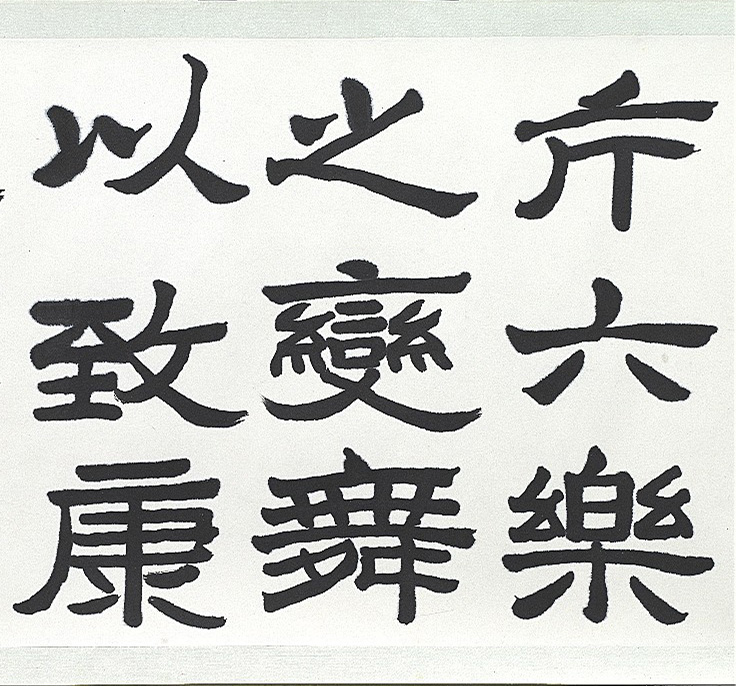 六樂
之變舞
以致康